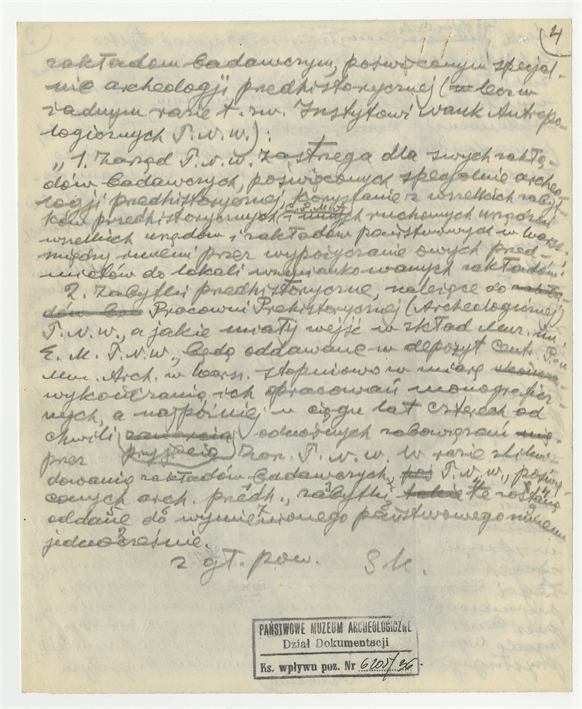 4
zakładom badawczym, poświęconym specjal-
nie archeologji predhistorycznej (lecz w
żadnym razie t. zw. Instytowi Nauk Antropo-
logicznych T.N.W.):
„1. Zarząd T.N.W. zastrzega dla swych zakła-
dów badawczych, poświęconych specjalnie archeo-
logji predhistorycznej, korzystanie z wszelkich zabyt-
ków przedhistorycznych i innych ruchomych
wszelkich urzędów i zakładów państwowych w Warsz.,
między innemi przez wypożyczanie owych przed-
miotów do lokali wzmiankowanych zakładów.
2. Zabytki predhistoryczne, należące do
Pracowni Prehistorycznej (Archeologicznej)
T.N.W., a jakie miały wejść w skład Muz. im.
E. M. T.N.W., będą oddawane w depozyt
Muz. Arch. w Warsz. stopniowo w miarę
wykończania ich opracowań monograficz-
nych, a najpóźniej w ciągu lat czterech od
chwili przyjęcia odnośnych zobowiązań
przez Zarz. T.N.W. W razie
dowania zakładów badawczych T.N.W., poświę-
conych arch. predh., zabytki te zostaną
oddane do wymienionego państwowego muzeum
jednocześnie.
z gł. pow. S.K.
PAŃSTWOWE MUZEUM ARCHEOLOGICZNE
Dział Dokumentacji
Ks. wpływu poz. Nr